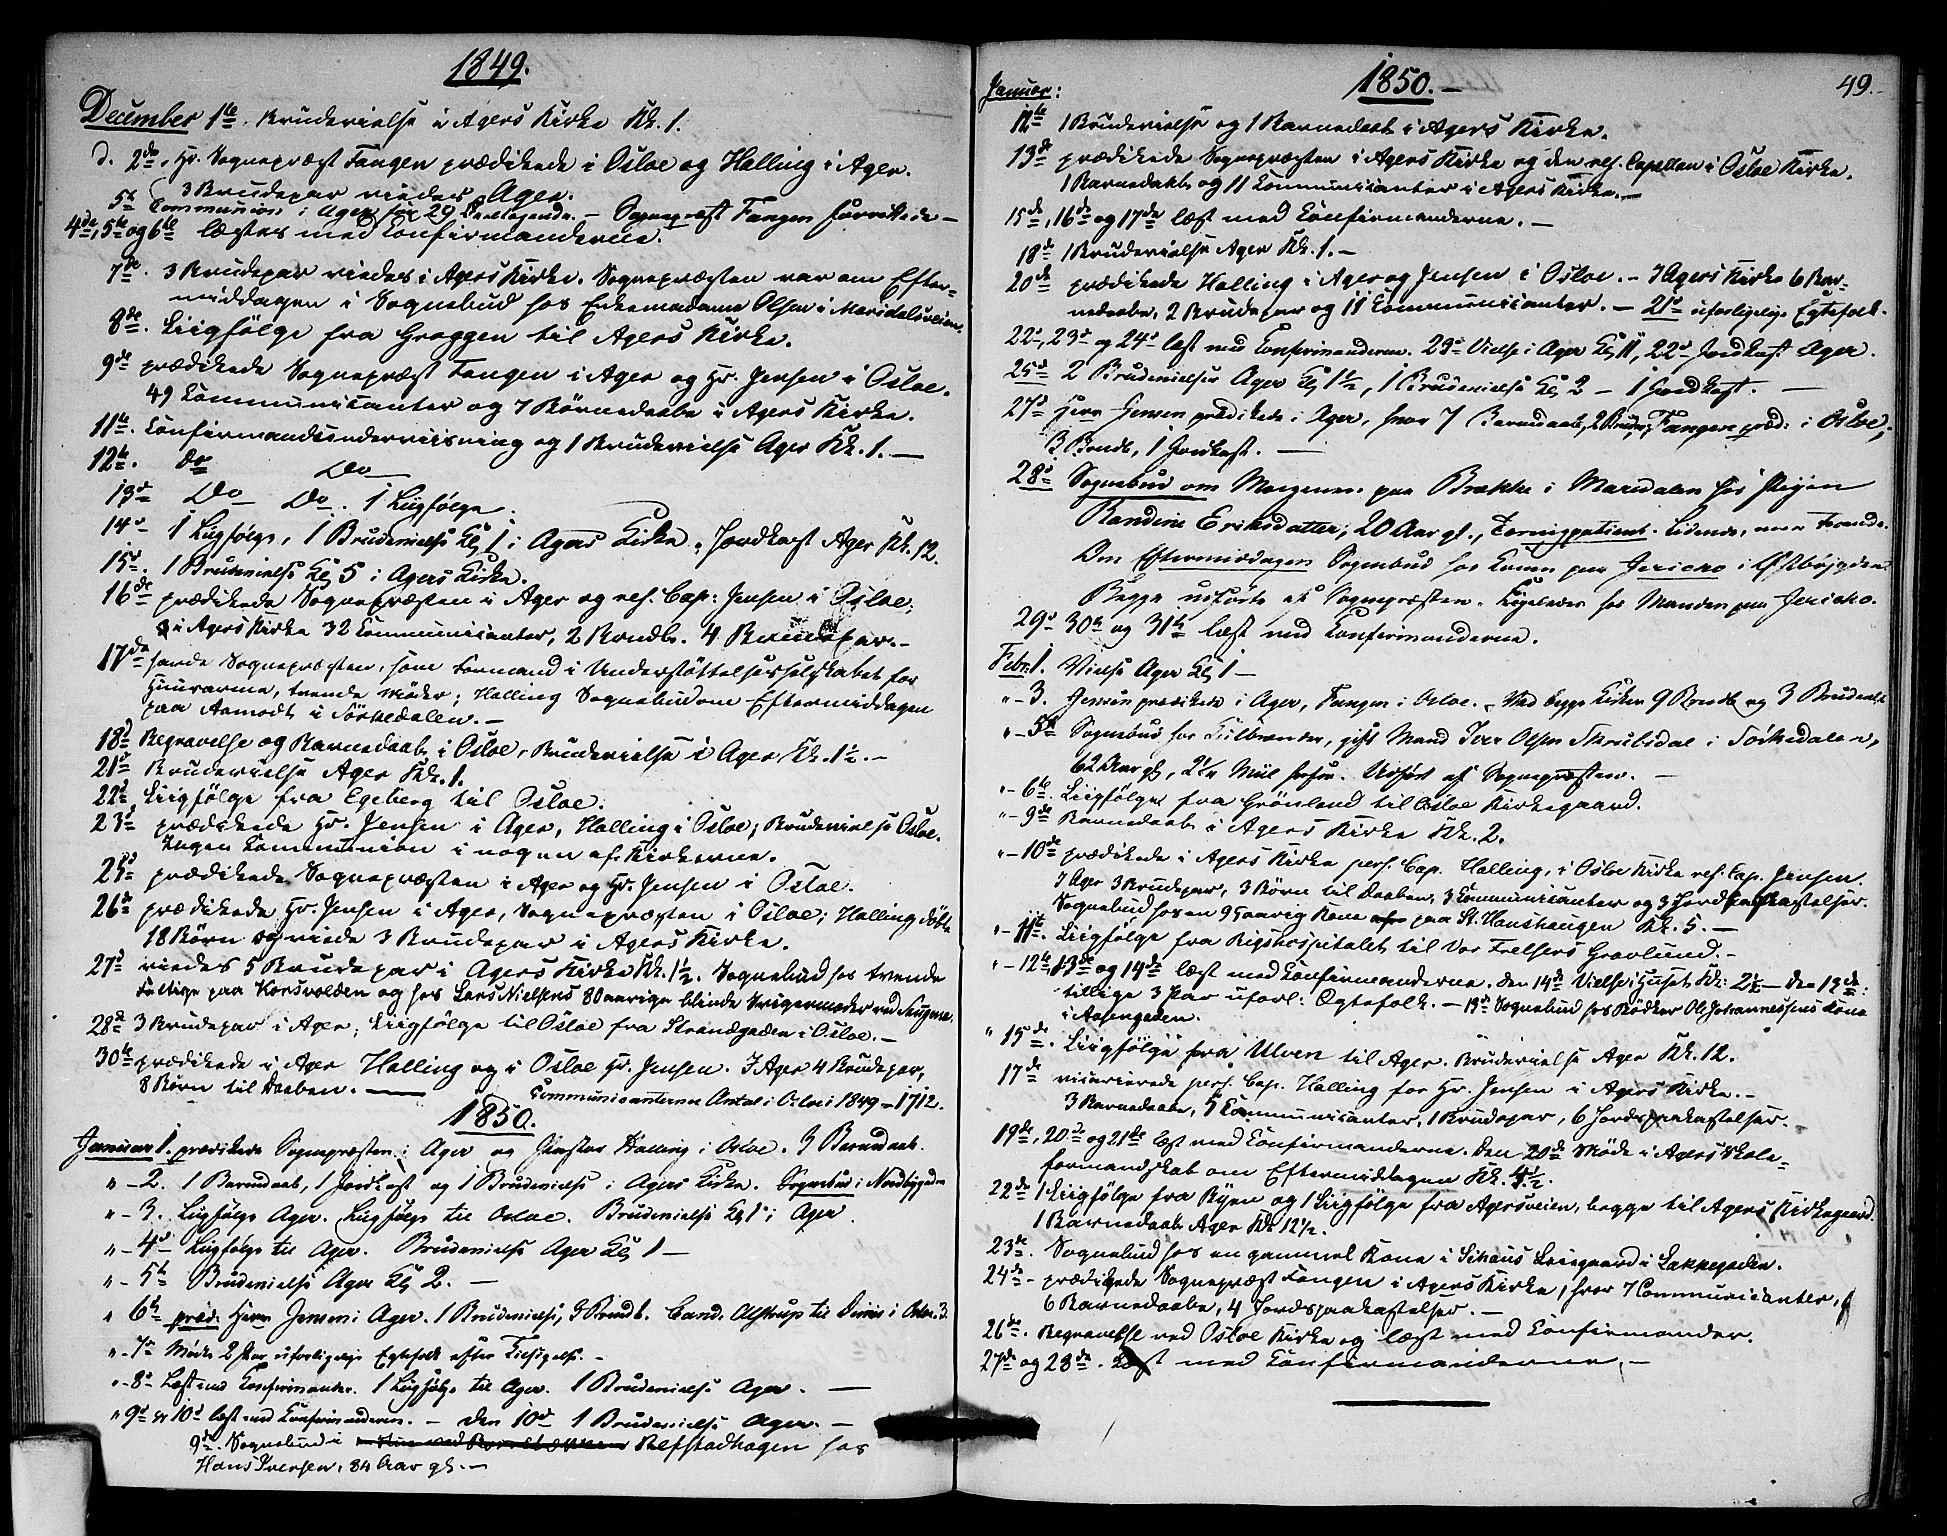 1849.
December 1te. Brudevielse i Agers Kirke Kl. 1.
d. 2de. Hr. Sognepræst Fangen prædikede i Osloe og Halling i Ager.
3 Brudepar viedes Ager.
5te Communion i Ager for 29 Deeltagende. – Sognepræst Fangen forrettede –
4de, 5te og 6te læstes med Confirmanderne.
7de. 3 Brudepar viedes i Agers Kirke. Sognepræsten var om Efter-
middagen i Sognebud hos Enkemadame Olsen i Maridalsveien.
8de. Liigfølge fra Grøggen til Agers Kirke.
9de prædikede Sognepræst Fangen i Ager og Hr. Jensen i Osloe.
49 Communicanter og 7 Børnedaabe i Agers Kirke.
11te. Confirmandundervisning og 1 Brudevielse Ager Kl. 1. –
12te. do Do
13d Do Do. 1 Liigfølge.
14d 1 Liigfølge, 1 Brudevielse Kl 1 i Agers Kirke. Jordkast Ager Kl. 12.
15d. 1 Brudevielse Kl 5 i Agers Kirke.
16de prædikede Sognepræsten i Ager og res. Cap: Jensen i Osloe;
i Agers Kirke 32 Communicanter, 2 Barndb. 4 Brudepar. –
17de havde Sognepræsten, som Formand i Understøttelsesselskabet for
Huusarme, tvende Møder; Halling Sognebud om Eftermiddagen
paa Aamodt i Sørkedalen. –
18d Begravelse og Barnedaab i Osloe, Brudevielse i Ager Kl. 1½. –
21d Brudevielse Ager Kl. 1.
22d Liigfølge fra Egeberg til Osloe.
23d prædikede Hr. Jensen i Ager, Halling i Osloe; Brudevielse Osloe.
Ingen Communion i nogen af Kirkerne.
25d prædikede Sognepræsten i Ager og Hr. Jensen i Osloe.
26de prædikede Hr. Jensen i Ager, Sognepræsten i Osloe; Halling døbte
18 Børn og viede 3 Brudepar i Agers Kirke.
27d viedes 5 Brudepar i Agers Kirke Kl. 1½. Sognebud hos tvende
Fattige paa Korsvolden og hos Lars Nielsens 80aarige blinde Svigermoder ved
28de 3 Brudepar i Ager; Liigfølge til Osloe fra Strandgaden i Osloe. –
30te prædikede i Ager Halling og i Osloe Hr. Jensen. I Ager 4 Brudepar,
8 Børn til Daaben. – Communicanternes Antal i Osloe i 1849 = 1712.
1850.
Januar 1. prædikede Sognepræsten i Ager og Halling i Osloe. 3 Barnedaab.
" – 2. 1 Barnedaab, 1 Jordkast og 1 Brudevielse i Agers Kirke. Sognebud i Nordbygden
" – 3. Liigfølge Ager. Liigfølge til Osloe. Brudevielse Kl 1 i Ager
" – 4d Liigfølge til Ager. Brudevielse Ager Kl 1 –
" – 5te Brudevielse Ager Kl 2. –
" 6te præd: Herr Jensen i Ager. 1 Brudevielse, 9 Barndb. Cand. Alstrup til i Osloe.
" – 7d Mødte 2 Par uforligelige Egtefolk efter Tilsigelse. –
" – 8d Læst med Confirmanter. 1 Liigfølge til Ager. 1 Brudevielse Ager. –
" 9d og 10d læst med Confirmanderne. – den 10d 1 Brudevielse Ager. –
9de. Sognebud i Refstadhagen hos
Hans Iversen, 84 Aar gl. –
1850. –
49.
Januar:
12te 1 Brudevielse og 1 Barnedaab i Agers Kirke.
13de prædikede Sognepræsten i Agers Kirke og den res. Capellan i Osloe Kirke.
1 Barnedaab og 11 Communicanter i Agers Kirke. –
15de, 16de og 17de læst med Confirmanderne. –
18de 1 Brudevielse Ager Kl. 1. –
20de prædikede Halling i Ager og Jensen i Osloe. – I Agers Kirke 6 Bar-
nedaabe, 2 Brudepar og 11 Communicanter. – 21d uforligelige Egtefolk.
22d, 23d og 24d læst med Confirmanderne. 23d Vielse i Ager Kl 11, 22d Jordkast Ager.
25d 2 Brudevielser Ager Kl 1½, 1 Brudevielse Kl 2 – 1 Jordkast. –
27d Herr Jensen prædikede i Ager, hvor 7 Barnedaab, 2 Brudep., Fangen præd: i Osloe,
3 Barndb, 1 Jordkast. –
28d Sognebud om Morgenen paa Brække i Maridalen hos Pigen
Randine Eriksdatter, 20 Aar gl.,
Om Eftermiddagen Sognebud hos Konen paa Jericho i Østbøygden.
Begge udførte af Sognepræsten. Ligeledes hos Manden paa Jericho.
29d 30te og 31te læst med Confirmanderne.
Febr. 1. Vielse Ager Kl 1 –
" – 3. Jensen prædikede i Ager, Fangen i Osloe. Ved begge Kirker 9 Barndb og 3 Brudevielser
" – 5te Sognebud hos gift Mand Iver Olsen Skrubsdal i Sørkedalen,
62 Aar gl, 2¼ Miil herfra. Udført af Sognepræsten. –
" – 6te. Liigfølge fra Grønland til Osloe Kirkegaard.
" – 9de Barnedaab i Agers Kirke Kl. 2.
" – 10de prædikede i Agers Kirke pers. Cap. Halling, i Osloe Kirke res. Cap. Jensen.
I Ager 3 Brudepar, 3 Børn til Daaben, 3 Communicanter og 3 Jordpaakastelser.
Sognebud hos en 95aarig Kone paa St. Hanshaugen Kl. 5. –
" – 11te. Liigfølge fra Rigshospitalet til Vor Frelsers Gravlund. –
" – 12te, 13de og 14de læst med Confirmanderne. Den 14de Vielse i Huset Kl: 2½ – Den 13de:
tillige 3 Par uforl: Egtefolk. – 13de Sognebud hos Bødker Ole Johannessens Kone
i Aasengaden.
" 15de. Liigfølge fra Ulven til Ager. Brudevielse Ager Kl. 12.
17de vicarierede pers. Cap. Halling for Hr. Jensen i Agers Kirke. –
3 Barnedaabe, 5 Communicanter, 1 Brudepar, 6 Jordspaakastelser. –
19de, 20de og 21de læst med Confirmanderne. Den 20de Møde i Agers Skole-
formandskab om Eftermiddagen Kl. 4½.
22de 1 Liigfølge fra Ryen og 1 Liigfølge fra Agersveien, begge til Agers Kirkegaard.
1 Barnedaab Ager Kl 12½.
23de. Sognebud hos en gammel Kone i Schous Leiegaard i Lakkegaden.
24de – prædikede Sognepræst Fangen i Agers Kirke, hvor 7 Communicanter,
6 Barnedaabe, 4 Jordspaakastelser. –
26de. Begravelse ved Osloe Kirke og læst med Confirmander.
27de og 28de. Læst med Confirmanderne. –